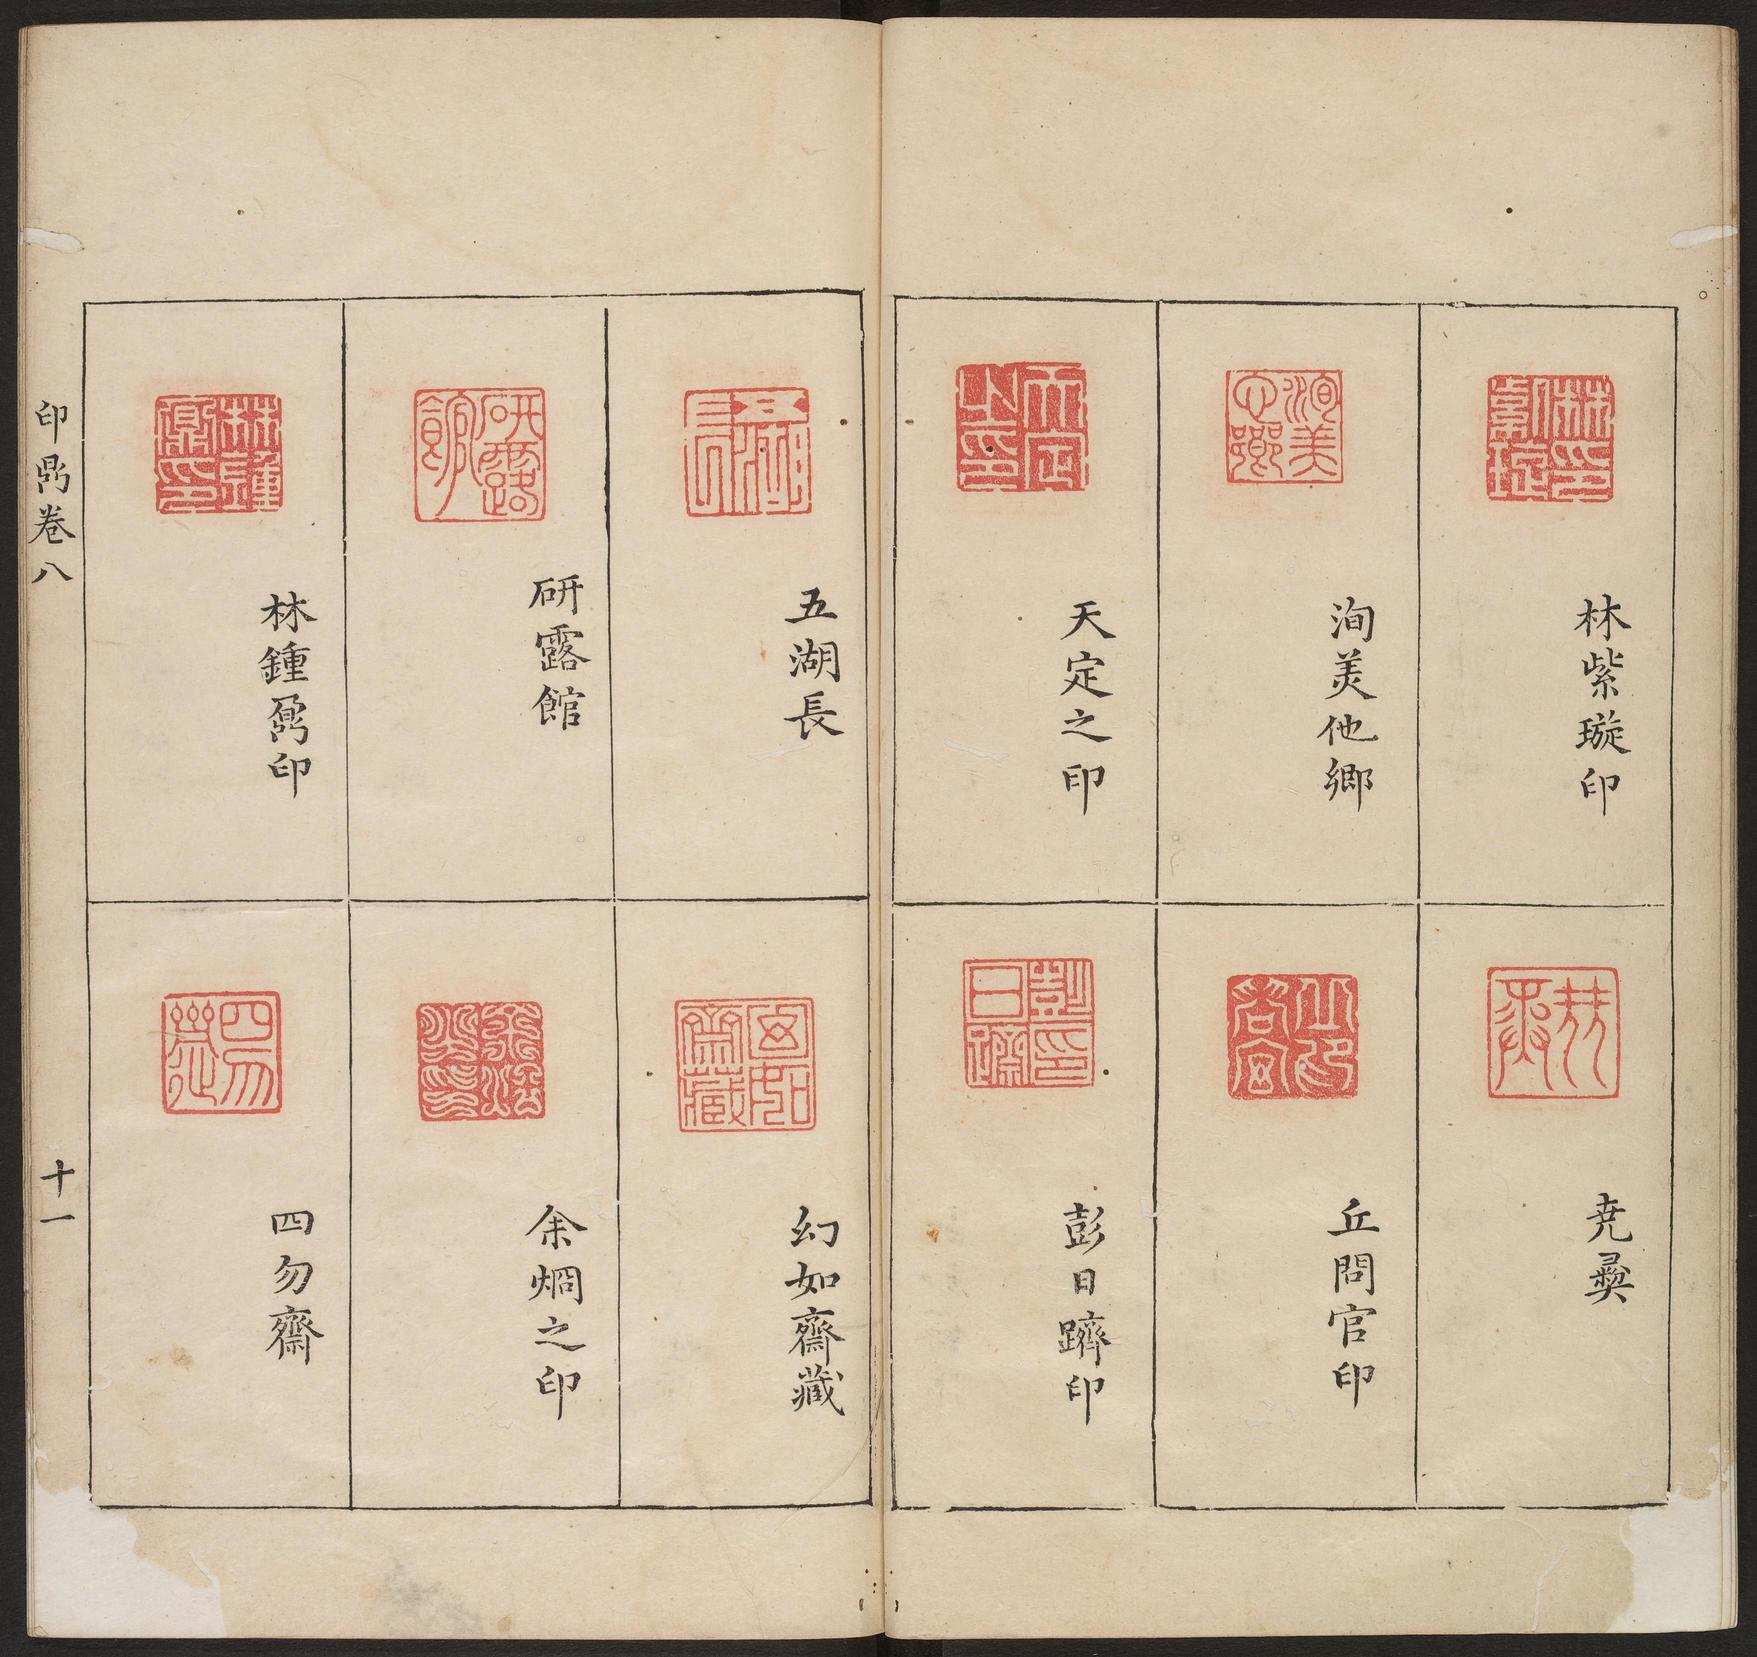 林紫璇印
洵美他鄉
天定之印
尭彛
丘問官印
彭日躋印
五湖長
研露館
林鍾鼐印
幻如齋藏
余烱之印
四勿齋
印鼎卷八
十一